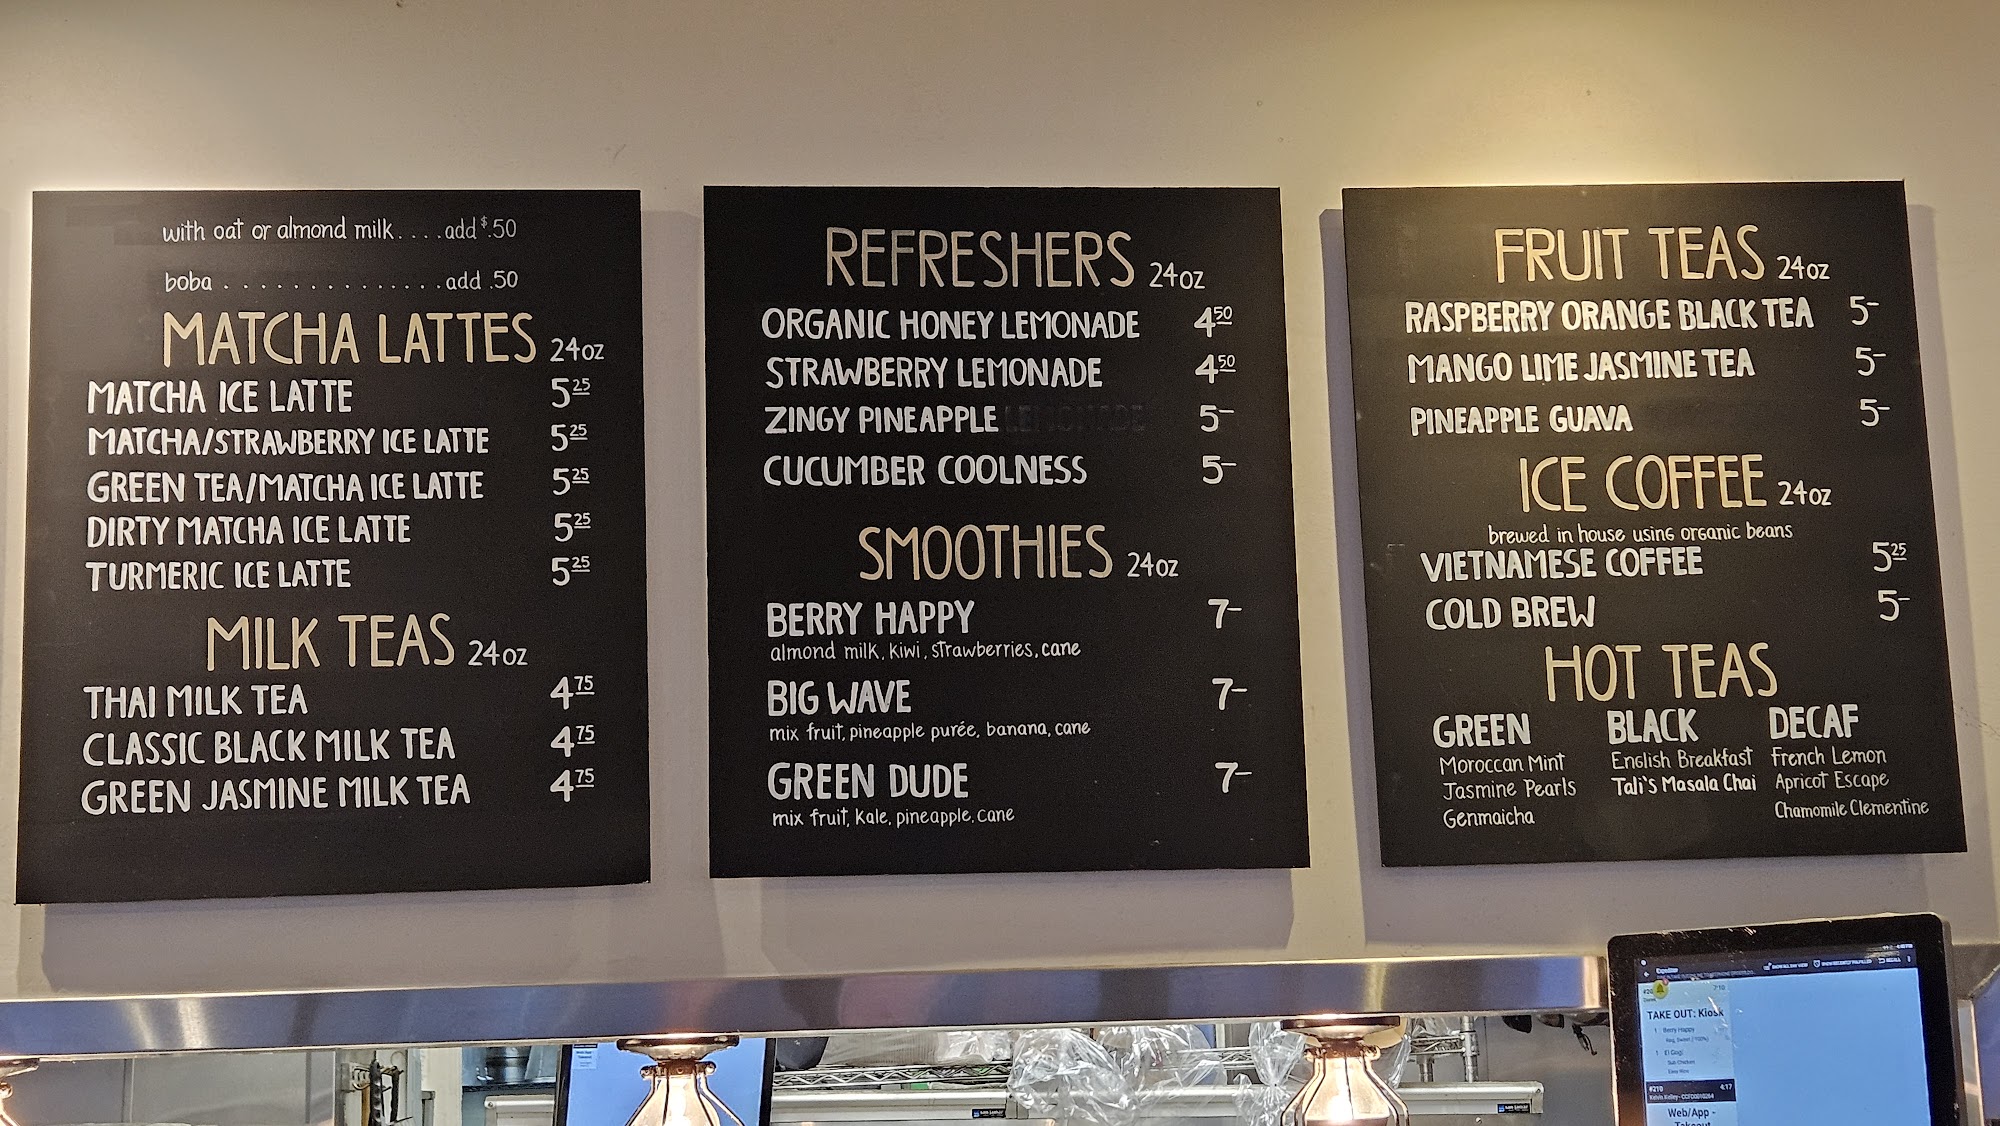 with oat or almond milk....add $.50
boba ..............add .50
MATCHA LATTES 24oz
MATCHA ICE LATTE 5 25
MATCHA/STRAWBERRY ICE LATTE 5 25
GREEN TEA/MATCHA ICE LATTE 5 25
DIRTY MATCHA ICE LATTE 5 25
TURMERIC ICE LATTE 5 25
MILK TEAS 24oz
THAI MILK TEA 4 75
CLASSIC BLACK MILK TEA 4 75
GREEN JASMINE MILK TEA 4 75
REFRESHERS 24oz
ORGANIC HONEY LEMONADE 4 50
STRAWBERRY LEMONADE 4 50
ZINGY PINEAPPLE LEMONADE 5-
CUCUMBER COOLNESS 5-
SMOOTHIES 24oz
BERRY HAPPY 7-
almond milk, kiwi, strawberries, cane
BIG WAVE 7-
mix fruit, pineapple purée, banana, cane
GREEN DUDE 7-
mix fruit, kale, pineapple, cane
FRUIT TEAS 24oz
RASPBERRY ORANGE BLACK TEA 5-
MANGO LIME JASMINE TEA 5-
PINEAPPLE GUAVA 5-
ICE COFFEE 24oz
brewed in house using organic beans
VIETNAMESE COFFEE 5 25
COLD BREW 5-
HOT TEAS
GREEN
Moroccan Mint
Jasmine Pearls
Genmaicha
BLACK
English Breakfast
Tali's Masala Chai
DECAF
French Lemon
Apricot Escape
Chamomile Clementine
Expeditor
7:10
TAKE OUT: Kiosk
1 Berry Happy
1 El Gogi
Sub Chicken
#210 4:17
Web/App -
Takeout